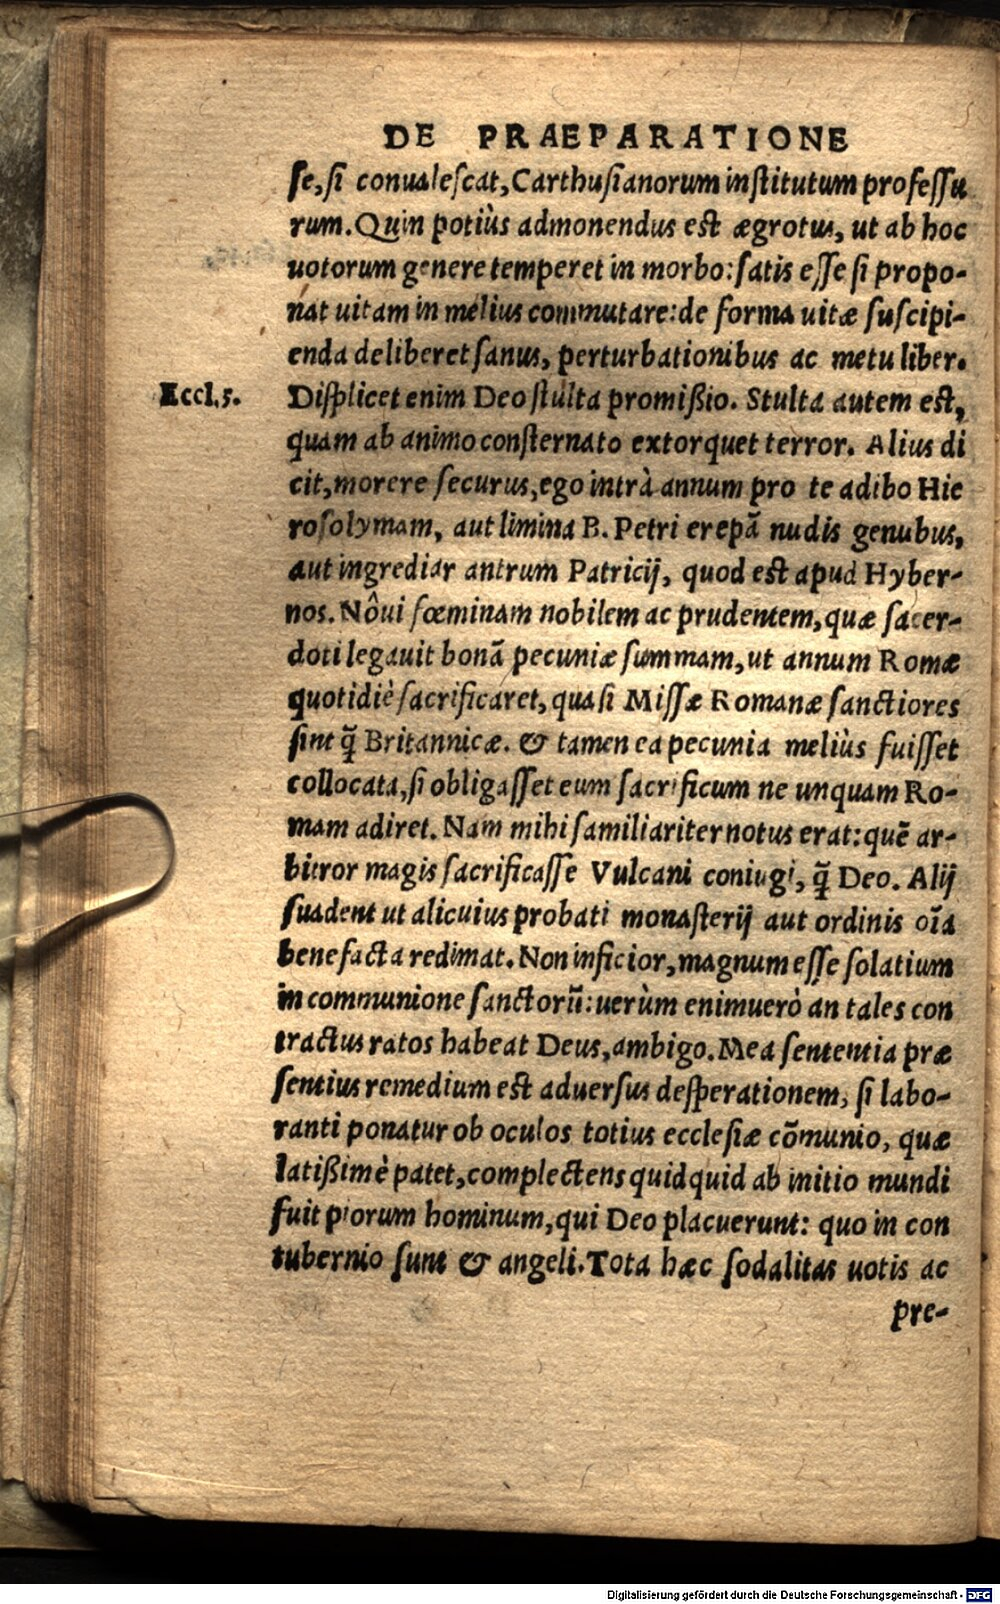 DE PRAEPARATIONE
se, si conualescat, Carthusianorum institutum professu
rum. Quin potiùs admonendus est ægrotus, ut ab hoc
uotorum genere temperet in morbo: satis esse si propo-
nat uitam in melius commutare: de forma uitæ suscipi-
enda deliberet sanus, perturbationibus ac metu liber.
Eccl.5.
Displicet enim Deo stulta promißio. Stulta autem est,
quam ab animo consternato extorquet terror. Alius di
cit, morere securus, ego intrà annum pro te adibo Hie
rosolymam, aut limina B. Petri erepā nudis genubus,
aut ingrediar antrum Patricij, quod est apud Hyber-
nos. Nôui fœminam nobilem ac prudentem, quæ sacer-
doti legauit bonā pecuniæ summam, ut annum Romæ
quotidiè sacrificaret, quasi Missæ Romanæ sanctiores
sint q̃ Britannicæ. & tamen ea pecunia meliùs fuisset
collocata, si obligasset eum sacrificum ne unquam Ro-
mam adiret. Nam mihi familiariter notus erat: quē ar-
bitror magis sacrificasse Vulcani coniugi, q̃ Deo. Alij
suadent ut alicuius probati monasterij aut ordinis oīa
benefacta redimat. Non inficior, magnum esse solatium
in communione sanctorū: uerùm enimuerò an tales con
tractus ratos habeat Deus, ambigo. Mea sententia præ
sentius remedium est aduersus desperationem, si labo-
ranti ponatur ob oculos totius ecclesiæ cōmunio, quæ
latißimè patet, complectens quidquid ab initio mundi
fuit piorum hominum, qui Deo placuerunt: quo in con
tubernio sunt & angeli. Tota hæc sodalitas uotis ac
pre-
Digitalisierung gefördert durch die Deutsche Forschungsgemeinschaft - DFG